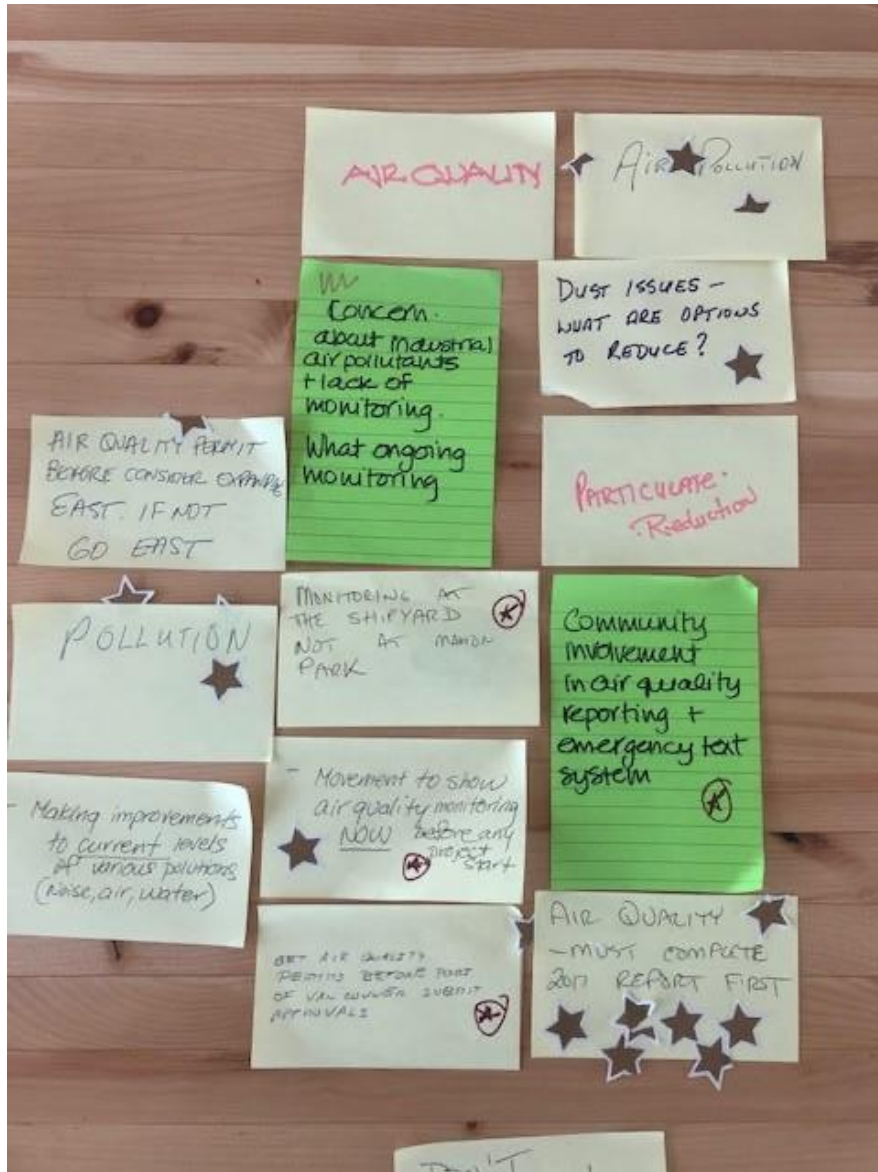 AIR QUALITY
AIR POLLUTION
Concern.
about industrial
air pollutants
+ lack of
monitoring.
What ongoing
monitoring
DUST ISSUES –
WHAT ARE OPTIONS
TO REDUCE?
AIR QUALITY PERMIT
BEFORE CONSIDER
EAST. IF NOT
GO EAST
PARTICULATE
Reduction
POLLUTION
MONITORING AT
THE SHIPYARD
NOT AT MAHON
PARK
Community
involvement
in air quality
reporting +
emergency text
system
- Making improvements
to current levels
of various polutions
(Noise, air, water)
- Movement to show
air quality monitoring
NOW before any
project
start
GET AIR QUALITY
PERMITS BEFORE PORT
OF VANCOUVER SUBMIT
APPROVALS
AIR QUALITY
- MUST COMPLETE
2017 REPORT FIRST
DON'T